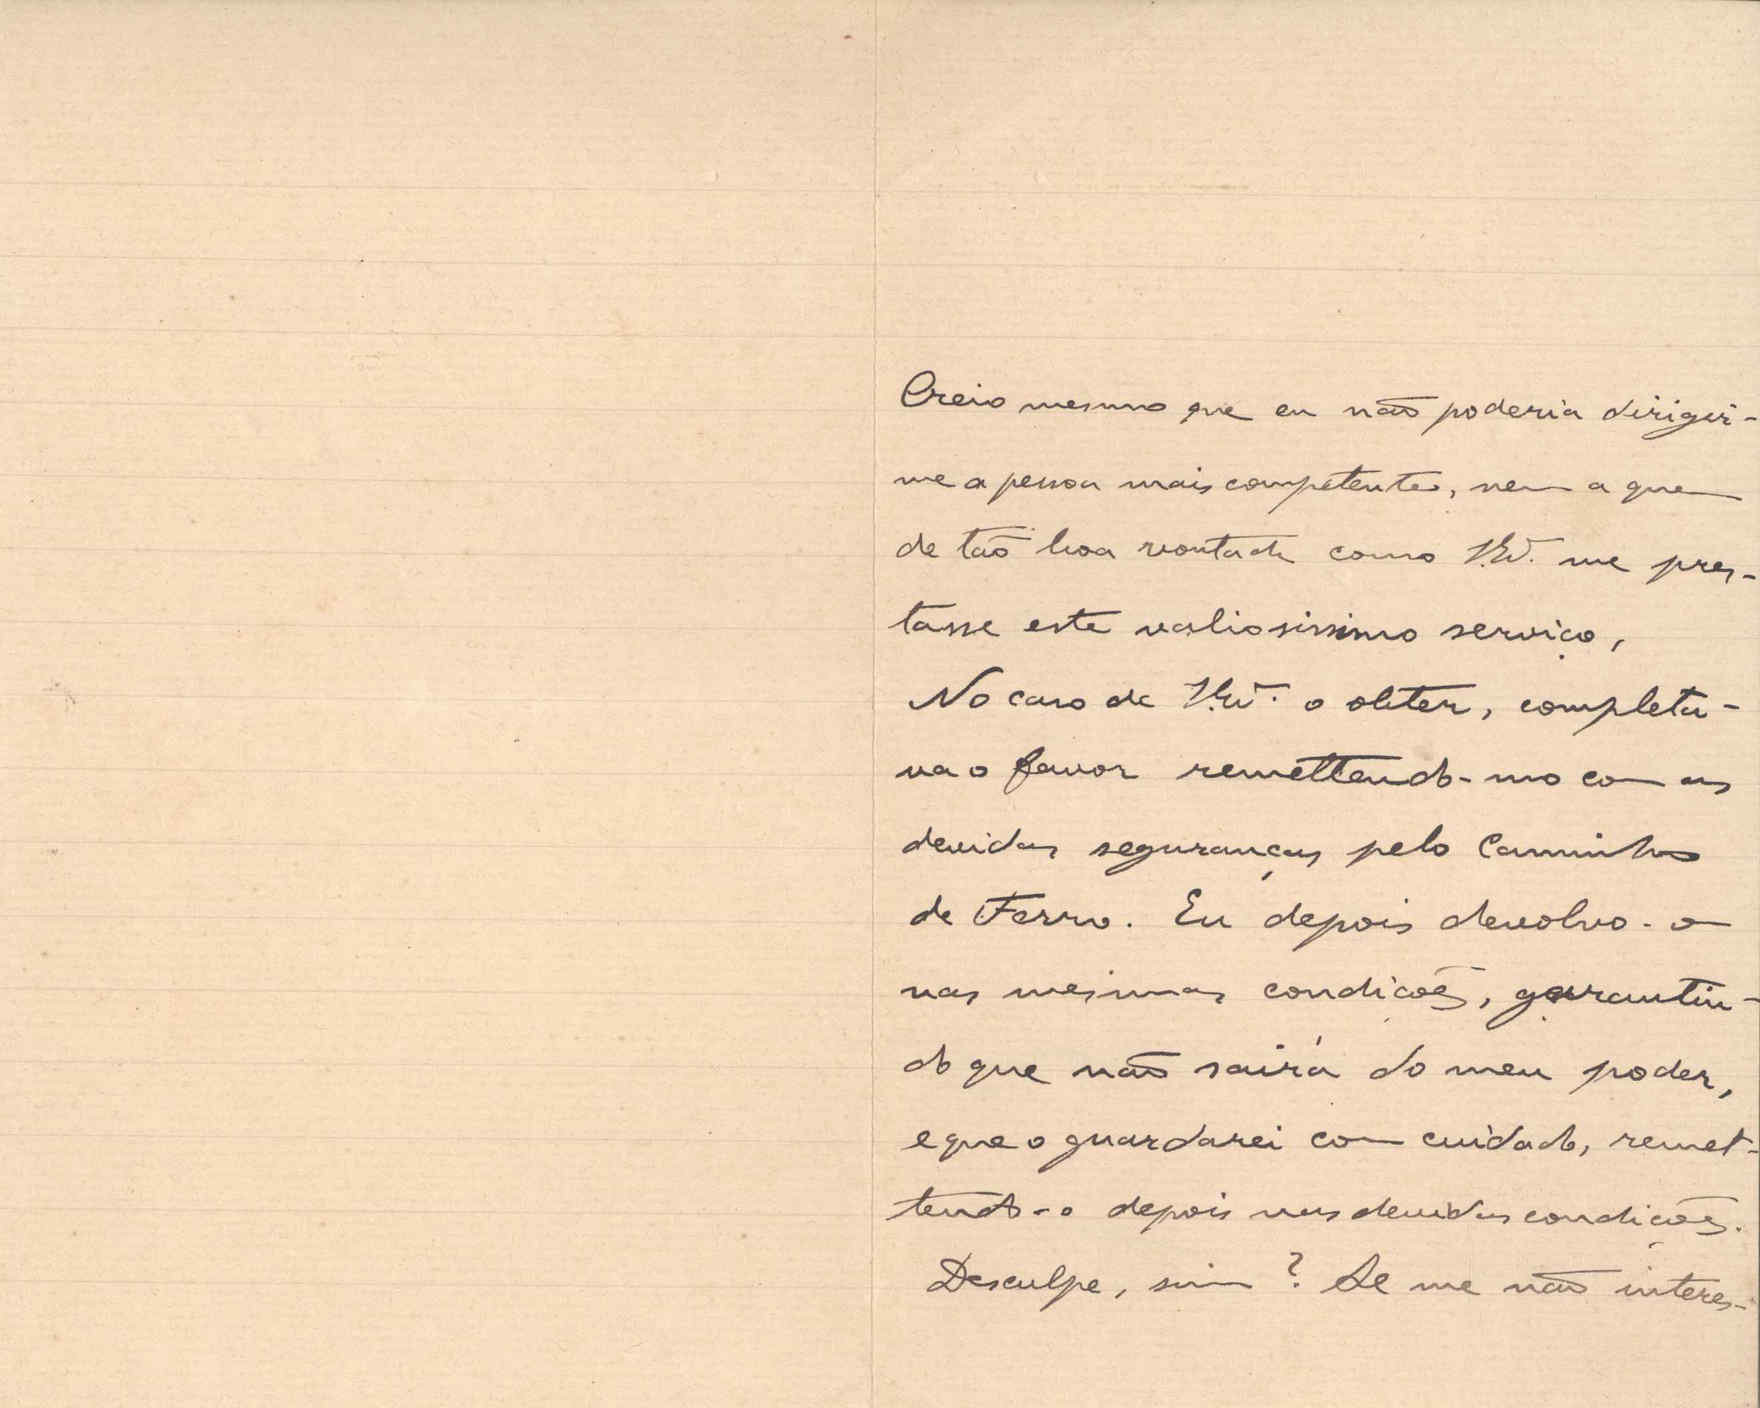 Creio mesmo que eu não poderia dirigir-
me a pessoa mais competente, nem a quem
de tão boa vontade como V. Ex.ª me pres-
tasse este valiosissimo serviço,
No caso de V. Ex.ª o obter, completa-
va o favor remettendo-mo com as
devidas seguranças pelo Caminho
de Ferro. Eu depois devolvo-o
nas mesmas condições, garantin-
do que não sairá do meu poder,
e que o guardarei com cuidado, remet-
tendo-o depois nas devidas condições.
Desculpe, sim? Se me não interes-